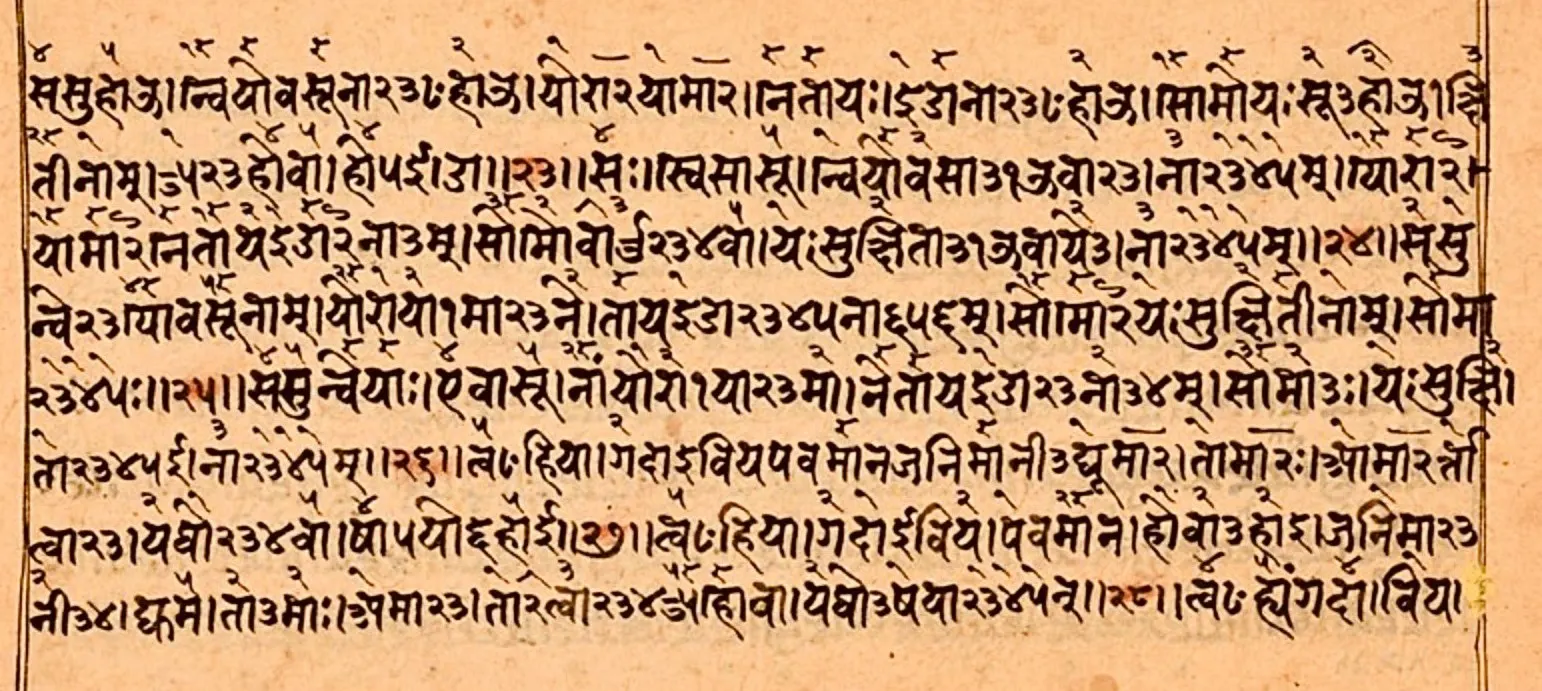 ससुहोञ। न्वियोवसूनार३ऽहोञ। योरार२यामार। नेतायः। इडानार३ऽहोञ। सोमोयःसू३होञ। क्षि
तीनाम्। उप२३होवा। होपईडा॥२३॥सः। स्वसासू। न्वियोवसा३१ञवार३। नार३४५म्। योरार।
यामार। नेतायइडारना३म्। सोमोवार्ञ२३४वा। यःसुक्षिता३१ञवाये३। नार३४५म्॥२४॥ससु
न्वे२३। योवसूनाम्। योराया१मार३ने। तायइडार३४५ना६५६म्। सोमारयःसुक्षितीनाम्। सोमा
२३४५ः॥२५॥ससुन्वेयाः। एवासू। नांयोरा१यार३मा। नेतायइडार३ना३४म्। सोमा३ः। यःसुक्षि।
तार३४५ई। नार३४५म्॥२६॥त्वꣳहिया। गदाइवियपवमानजनिमानी३द्यूमार। तामारः। आमारर्त्ता
त्वार३। यघोर३४वा। षा५योद्दहोई॥२७॥त्वꣳहिया। गदाईविय। पवमान। होवा३हाइ। जनिमार३
नी३४। द्युमे। ता३माः। अमार३। तारत्वार३४औहोवा। यघो३षयार३४५न्॥२८॥त्वꣳह्यंगदा। विय।